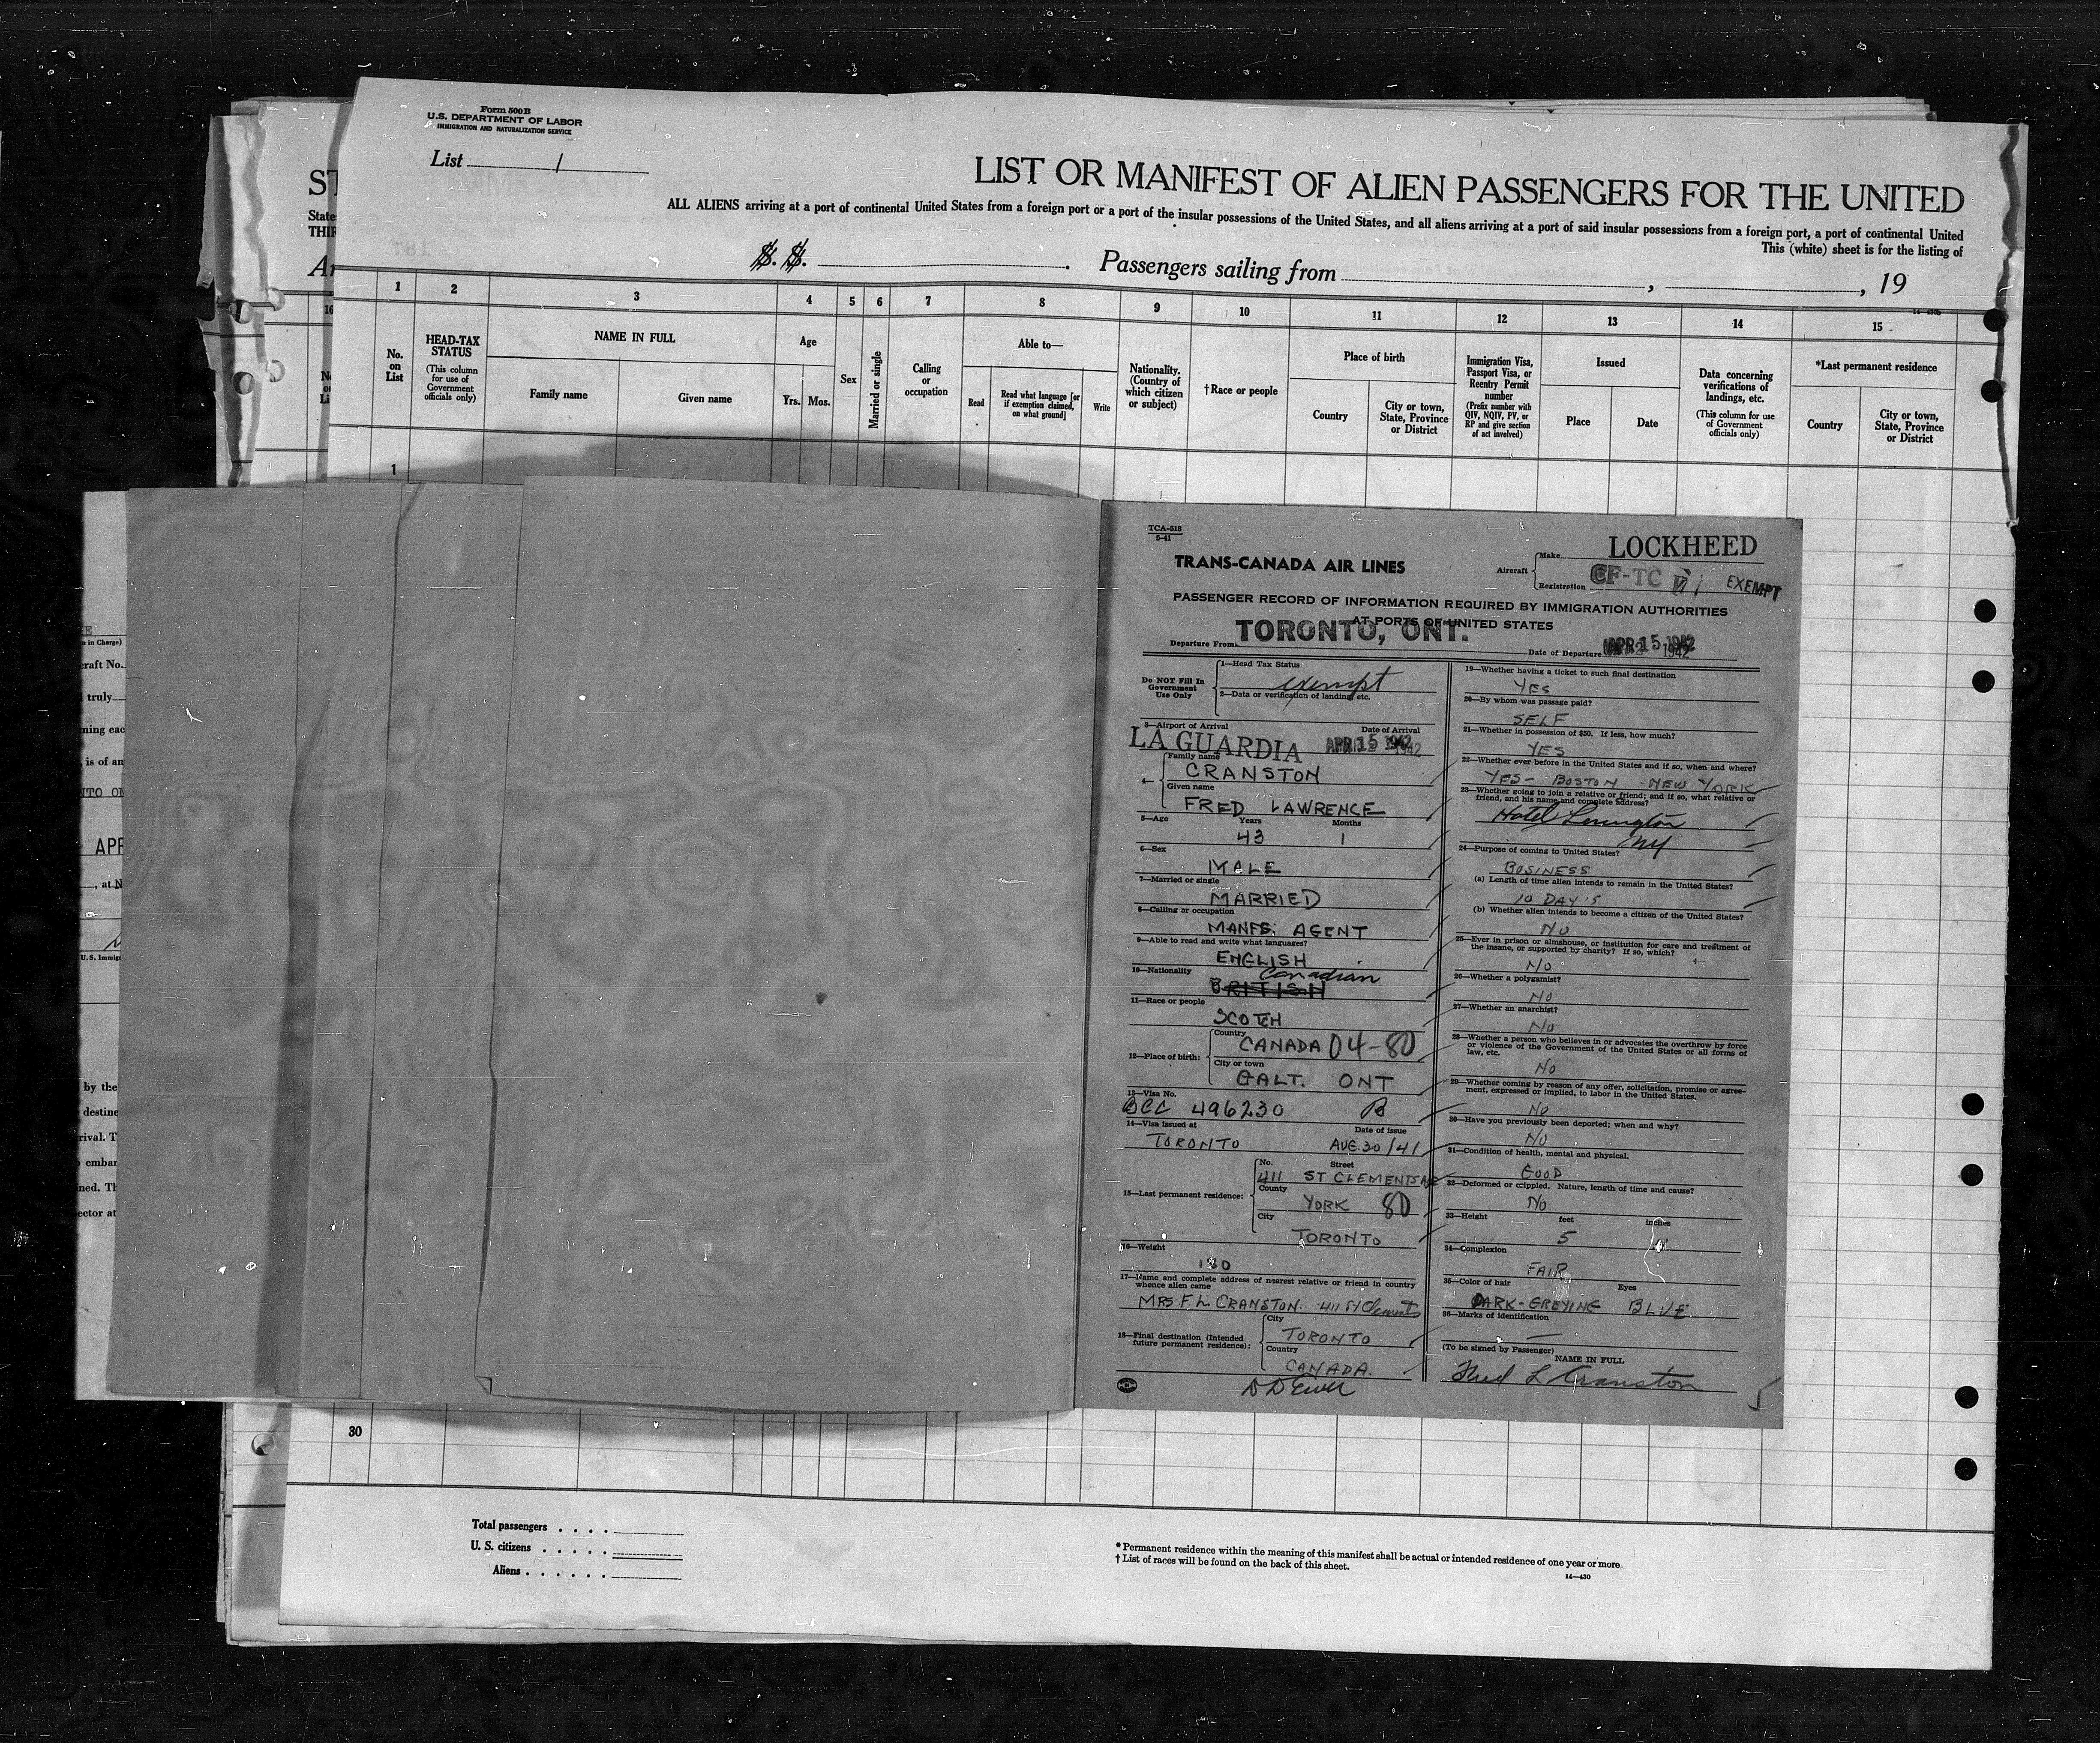 Form 500B
U.S. DEPARTMENT OF LABOR
IMMIGRATION AND NATURALIZATION SERVICE
List 1
LIST OR MANIFEST OF ALIEN PASSENGERS FOR THE UNITED
ALL ALIENS arriving at a port of continental United States from a foreign port or a port of the insular possessions of the United States, and all aliens arriving at a port of said insular possessions from a foreign port, a port of continental United
This (white) sheet is for the listing of
S. S. . Passengers sailing from , , 19
ST
State
THIR
1 2 3 4 5 6 7 8 9 10 11 12 13 14 15
No. on List
HEAD-TAX STATUS
(This column for use of Government officials only)
NAME IN FULL
Family name
Given name
Age
Yrs. Mos.
Sex
Married or single
Calling or occupation
Able to—
Read
Read what language [or if exemption claimed, on what ground]
Write
Nationality. (Country of which citizen or subject)
†Race or people
Place of birth
Country
City or town, State, Province or District
Immigration Visa, Passport Visa, or Reentry Permit number
(Prefix number with QIV, NQIV, PV, or RP and give section of act involved)
Issued
Place
Date
Data concerning verifications of landings, etc.
(This column for use of Government officials only)
*Last permanent residence
Country
City or town, State, Province or District
1
in Charge)
craft No.
truly
ning eac
is of an
APR
, at N
U.S. Immig
by the
destine
rival. T
embar
ned. Th
ector at
TCA-518
5-41
TRANS-CANADA AIR LINES
Aircraft
Make LOCKHEED
Registration CF-TC EXEMPT
PASSENGER RECORD OF INFORMATION REQUIRED BY IMMIGRATION AUTHORITIES
AT PORTS OF UNITED STATES
Departure From TORONTO, ONT.
Date of Departure APR 15 1942
Do NOT Fill In Government Use Only
1—Head Tax Status
exempt
2—Data or verification of landing etc.
3—Airport of Arrival Date of Arrival
LA GUARDIA APR 15 1942
4—
Family name
CRANSTON
Given name
FRED LAWRENCE
5—Age Years Months
43 1
6—Sex
MALE
7—Married or single
MARRIED
8—Calling or occupation
MANFS. AGENT
9—Able to read and write what languages?
ENGLISH
10—Nationality Canadian
BRITISH
11—Race or people
SCOTCH
12—Place of birth:
Country
CANADA 04-80
City or town
GALT. ONT
13—Visa No.
BCC 496230 B
14—Visa issued at Date of issue
TORONTO AUG.30/41
15—Last permanent residence:
No. Street
411 ST CLEMENTS AVE
County
YORK 80
City
TORONTO
16—Weight
180
17—Name and complete address of nearest relative or friend in country whence alien came
MRS F. L. CRANSTON. 411 St Clements
18—Final destination (Intended future permanent residence):
City
TORONTO
Country
CANADA.
19—Whether having a ticket to such final destination
YES
20—By whom was passage paid?
SELF
21—Whether in possession of $50. If less, how much?
YES
22—Whether ever before in the United States and if so, when and where?
YES- BOSTON -NEW YORK
23—Whether going to join a relative or friend; and if so, what relative or friend, and his name and complete address?
Hotel Lexington
NY
24—Purpose of coming to United States?
BUSINESS
(a) Length of time alien intends to remain in the United States?
10 DAY'S
(b) Whether alien intends to become a citizen of the United States?
NO
25—Ever in prison or almshouse, or institution for care and treatment of the insane, or supported by charity? If so, which?
NO
26—Whether a polygamist?
NO
27—Whether an anarchist?
NO
28—Whether a person who believes in or advocates the overthrow by force or violence of the Government of the United States or all forms of law, etc.
NO
29—Whether coming by reason of any offer, solicitation, promise or agreement, expressed or implied, to labor in the United States.
NO
30—Have you previously been deported; when and why?
NO
31—Condition of health, mental and physical.
GOOD
32—Deformed or crippled. Nature, length of time and cause?
NO
33—Height feet inches
5
34—Complexion
FAIR
35—Color of hair Eyes
DARK-GREYING BLUE
36—Marks of identification
—
(To be signed by Passenger) NAME IN FULL
Fred L Cranston
30
Total passengers
U. S. citizens
Aliens
* Permanent residence within the meaning of this manifest shall be actual or intended residence of one year or more.
† List of races will be found on the back of this sheet.
14—430